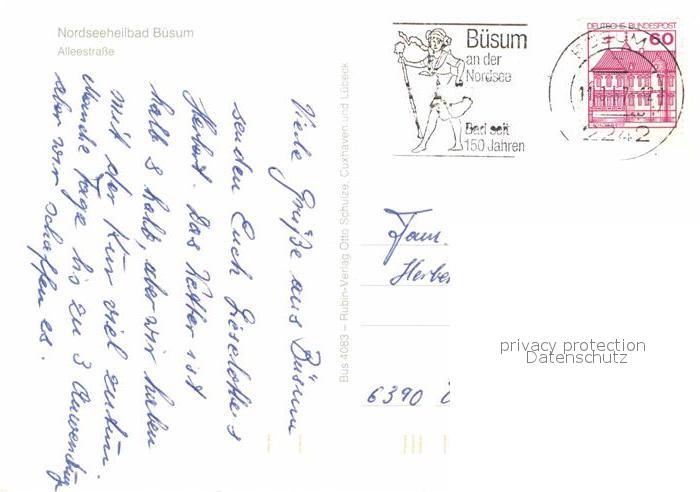 Nordseeheilbad Büsum
Alleestraße
Viele Grüße aus Büsum
senden Euch Liselotte &
Herbert. Das Wetter ist
halb & halb, aber wir haben
mit der Kur viel zu tun.
Manche Tage bis zu 3 Anwendung
aber wir schaffen es.
Bus 4083 – Rubin-Verlag Otto Schulze, Cuxhaven und Lübeck
Büsum
an der
Nordsee
Bad seit
150 Jahren
DEUTSCHE BUNDESPOST
60
2242
Fam.
Herber
6390
privacy protection
Datenschutz